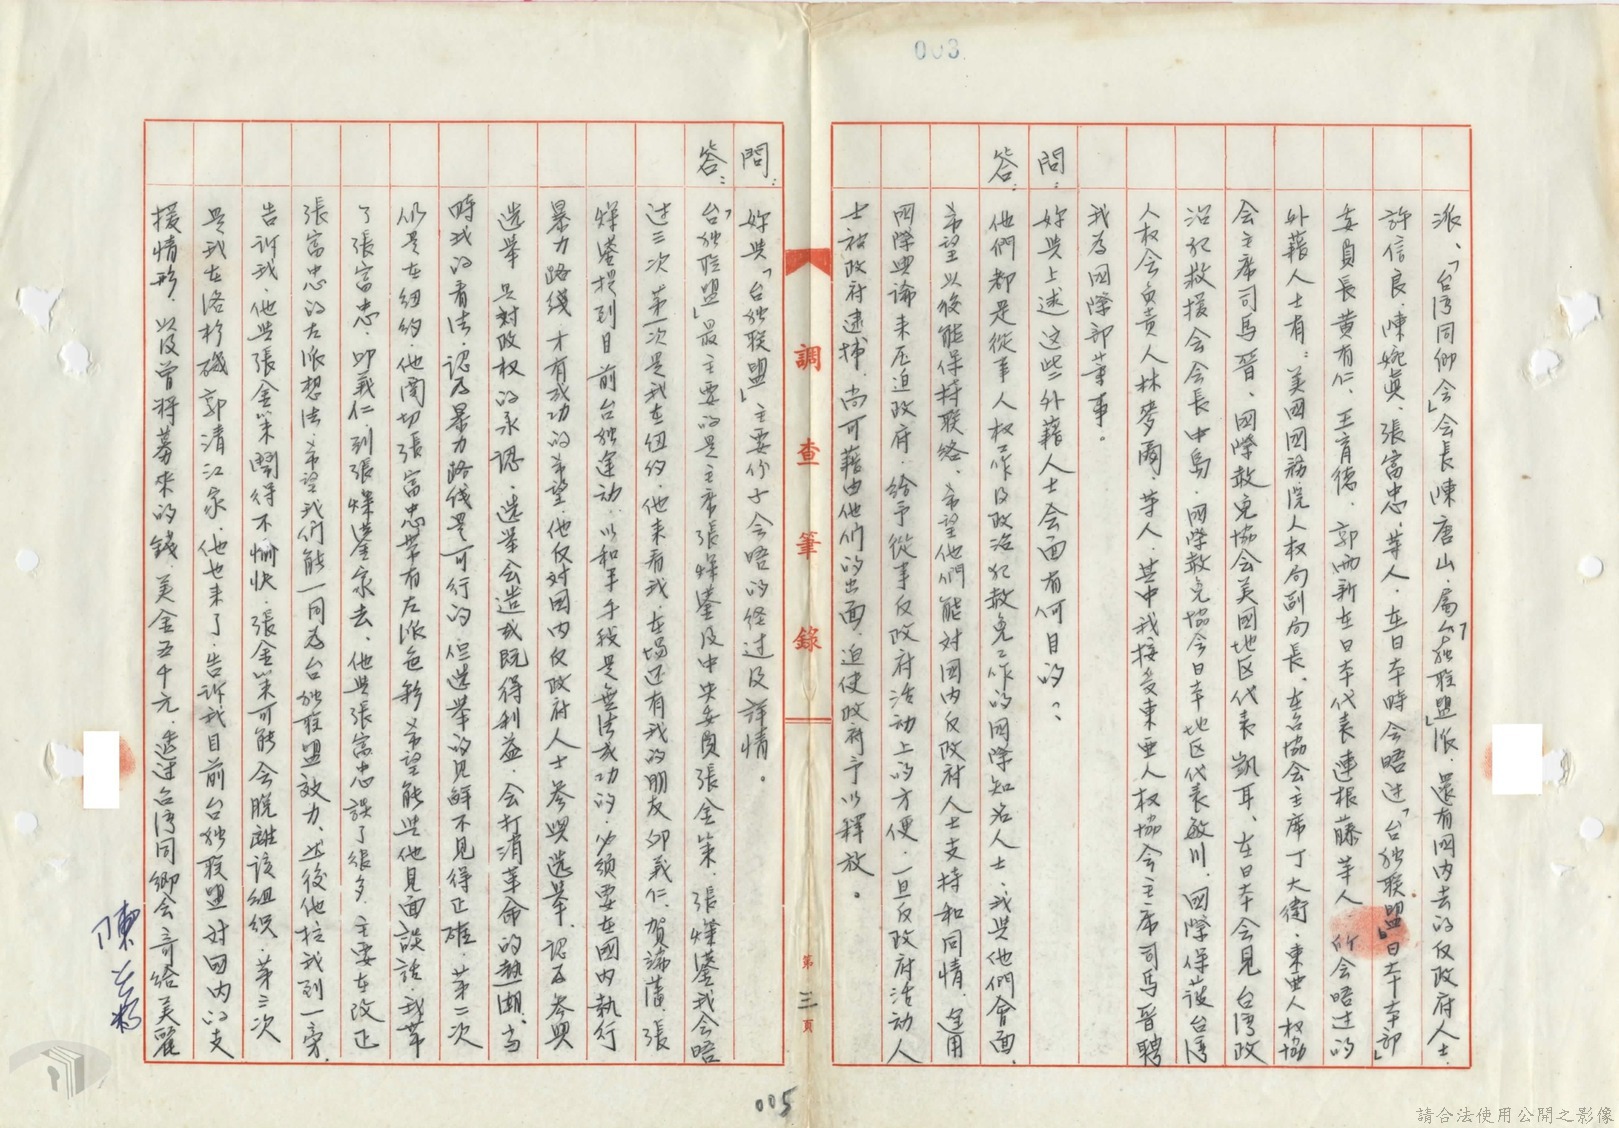 003
派、「台湾同仰会」会長陳唐山、屬「台独联盟」派、還有国内去的反政府人士、
許信良、陳婉真、張富忠、等人、在日本時会晤过「台独联盟」日本本部」
委員長黄有仁、王育德、郭西新在日本代表連根藤等人 所会晤过的
外藉人士有：美国国務院人权局副局長、在台協会主席丁大衛、東亜人权協
会主席司馬晋、国際赦免協会美国地区代表凱耳、在日本会見台湾政
治犯救援会会長中島、国際赦免協会日本地区代表敏川、国際保護台湾
人权会負責人林麥爾、等人、其中我接受東亜人权協会主席司馬晋聘
我為国際部董事。
問：妳与上述这些外藉人士会面有何目的？
答：他們都是從事人权工作及政治犯赦免工作的国際知名人士、我与他們會面、
希望以後能保持联络、希望他們能对国内反政府人士支持和同情、運用
国際輿論来压迫政府、给予從事反政府活动上的方便、一旦反政府活动人
士被政府逮捕、尚可藉由他们的出面、迫使政府予以释放。
調查筆錄
第三頁
問：妳與「台独联盟」主要份子会晤的经过及詳情。
答：「台独联盟」最主要的是主席張燦鍙及中央委員張金策、張燦鍙我会晤
过三次、第一次是我在纽约、他来看我、在場还有我的朋友邱義仁、賀端蕃、張
燦鍙提到目前台独運动、以和平手段是無法成功的、必须要在國内執行
暴力路线、才有成功的希望、他反对国内反政府人士參與選举、認為參與
選举 是对政权的承認、選举会造成既得利益、会打消革命的熱潮、当
時我的看法、認為暴力路线是可行的、但選举的见解不見得正確、第二次
仍是在纽约、他関切張富忠帶有左派色彩、希望能與他見面談話、我帶
了張富忠、邱義仁、到張燦鍙家去、他與張富忠談了很多、主要在改正
張富忠的左派想法、希望我们能一同為台独联盟效力、然後他拉我到一旁、
告訴我、他與張金策鬧得不愉快、張金策可能会脱離該組织、第三次
是我在洛杉磯郭清江家、他也来了、告訴我目前台独联盟对国内的支
援情形、以及曾将募来的錢、美金五千元、透过台湾同鄉会寄给美麗
005
請合法使用公開之影像